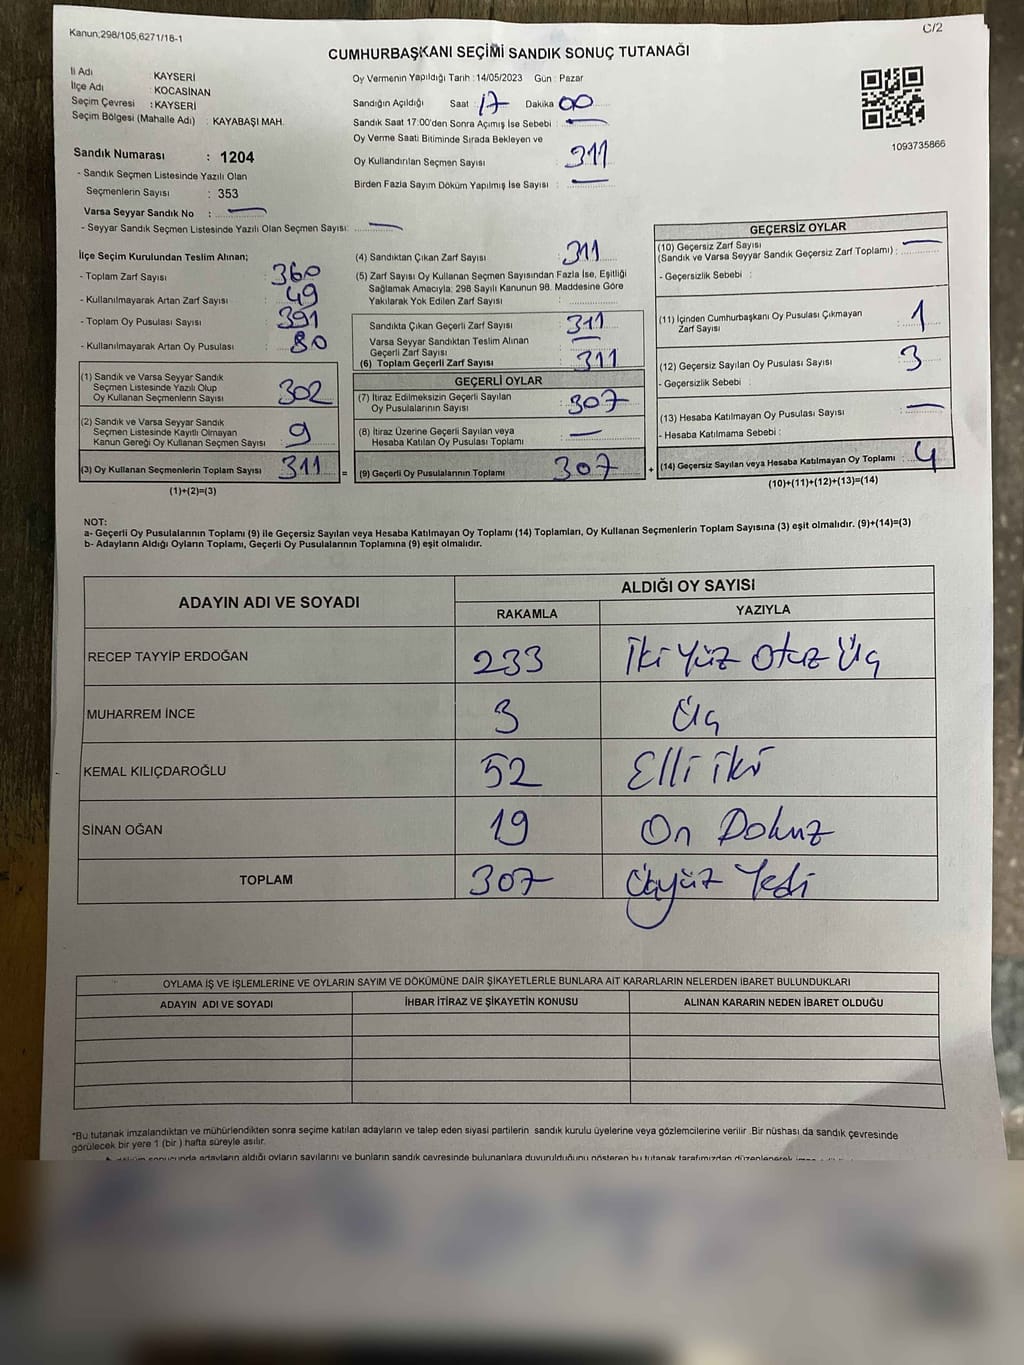 Kanun;298/105,6271/18-1
C/2
CUMHURBAŞKANI SEÇİMİ SANDIK SONUÇ TUTANAĞI
İl Adı KAYSERİ
İlçe Adı : KOCASİNAN
Seçim Çevresi : KAYSERİ
Seçim Bölgesi (Mahalle Adı) : KAYABAŞI MAH.
Sandık Numarası : 1204
- Sandık Seçmen Listesinde Yazılı Olan
Seçmenlerin Sayısı : 353
Varsa Seyyar Sandık No :
- Seyyar Sandık Seçmen Listesinde Yazılı Olan Seçmen Sayısı:
Oy Vermenin Yapıldığı Tarih : 14/05/2023 Gün : Pazar
Sandığın Açıldığı Saat : 17 Dakika : 00
Sandık Saat 17:00'den Sonra Açımış İse Sebebi :
Oy Verme Saati Bitiminde Sırada Bekleyen ve
Oy Kullandırılan Seçmen Sayısı : 311
Birden Fazla Sayım Döküm Yapılmış İse Sayısı :
1093735866
İlçe Seçim Kurulundan Teslim Alınan;
- Toplam Zarf Sayısı : 360
- Kullanılmayarak Artan Zarf Sayısı : 49
- Toplam Oy Pusulası Sayısı : 391
- Kullanılmayarak Artan Oy Pusulası : 80
(1) Sandık ve Varsa Seyyar Sandık
Seçmen Listesinde Yazılı Olup
Oy Kullanan Seçmenlerin Sayısı : 302
(2) Sandık ve Varsa Seyyar Sandık
Seçmen Listesinde Kayıtlı Olmayan
Kanun Gereği Oy Kullanan Seçmen Sayısı : 9
(3) Oy Kullanan Seçmenlerin Toplam Sayısı : 311 =
(1)+(2)=(3)
(4) Sandıktan Çıkan Zarf Sayısı : 311
(5) Zarf Sayısı Oy Kullanan Seçmen Sayısından Fazla İse, Eşitliği
Sağlamak Amacıyla; 298 Sayılı Kanunun 98. Maddesine Göre
Yakılarak Yok Edilen Zarf Sayısı :
Sandıkta Çıkan Geçerli Zarf Sayısı : 311
Varsa Seyyar Sandıktan Teslim Alınan
Geçerli Zarf Sayısı
(6) Toplam Geçerli Zarf Sayısı : 311
GEÇERLİ OYLAR
(7) İtiraz Edilmeksizin Geçerli Sayılan
Oy Pusulalarının Sayısı : 307
(8) İtiraz Üzerine Geçerli Sayılan veya
Hesaba Katılan Oy Pusulası Toplamı :
(9) Geçerli Oy Pusulalarının Toplamı : 307 +
GEÇERSİZ OYLAR
(10) Geçersiz Zarf Sayısı
(Sandık ve Varsa Seyyar Sandık Geçersiz Zarf Toplamı) :
- Geçersizlik Sebebi :
(11) İçinden Cumhurbaşkanı Oy Pusulası Çıkmayan
Zarf Sayısı : 1
(12) Geçersiz Sayılan Oy Pusulası Sayısı : 3
- Geçersizlik Sebebi :
(13) Hesaba Katılmayan Oy Pusulası Sayısı :
- Hesaba Katılmama Sebebi :
(14) Geçersiz Sayılan veya Hesaba Katılmayan Oy Toplamı : 4
(10)+(11)+(12)+(13)=(14)
NOT:
a- Geçerli Oy Pusulalarının Toplamı (9) ile Geçersiz Sayılan veya Hesaba Katılmayan Oy Toplamı (14) Toplamları, Oy Kullanan Seçmenlerin Toplam Sayısına (3) eşit olmalıdır. (9)+(14)=(3)
b- Adayların Aldığı Oyların Toplamı, Geçerli Oy Pusulalarının Toplamına (9) eşit olmalıdır.
ADAYIN ADI VE SOYADI
ALDIĞI OY SAYISI
RAKAMLA YAZIYLA
RECEP TAYYİP ERDOĞAN 233 İki Yüz Otuz Üç
MUHARREM İNCE 3 Üç
KEMAL KILIÇDAROĞLU 52 Elli iki
SİNAN OĞAN 19 On Dokuz
TOPLAM 307 Üçyüz Yedi
OYLAMA İŞ VE İŞLEMLERİNE VE OYLARIN SAYIM VE DÖKÜMÜNE DAİR ŞİKAYETLERLE BUNLARA AİT KARARLARIN NELERDEN İBARET BULUNDUKLARI
ADAYIN ADI VE SOYADI İHBAR İTİRAZ VE ŞİKAYETİN KONUSU ALINAN KARARIN NEDEN İBARET OLDUĞU
*Bu tutanak imzalandıktan ve mühürlendikten sonra seçime katılan adayların ve talep eden siyasi partilerin sandık kurulu üyelerine veya gözlemcilerine verilir .Bir nüshası da sandık çevresinde
görülecek bir yere 1 (bir ) hafta süreyle asılır.
sonucunda adayların aldığı oyların sayılarını ve bunların sandık çevresinde bulunanlara duyurulduğunu gösteren bu tutanak tarafımızdan düzenlenerek